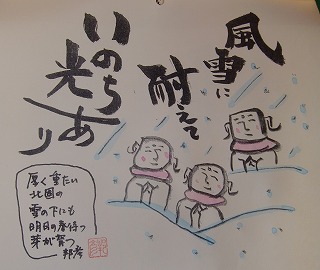 風雪に
耐えて
いのち
光あり
厚く重たい
北国の
雪の下にも
明日の春待つ
芽が育つ
邦彦